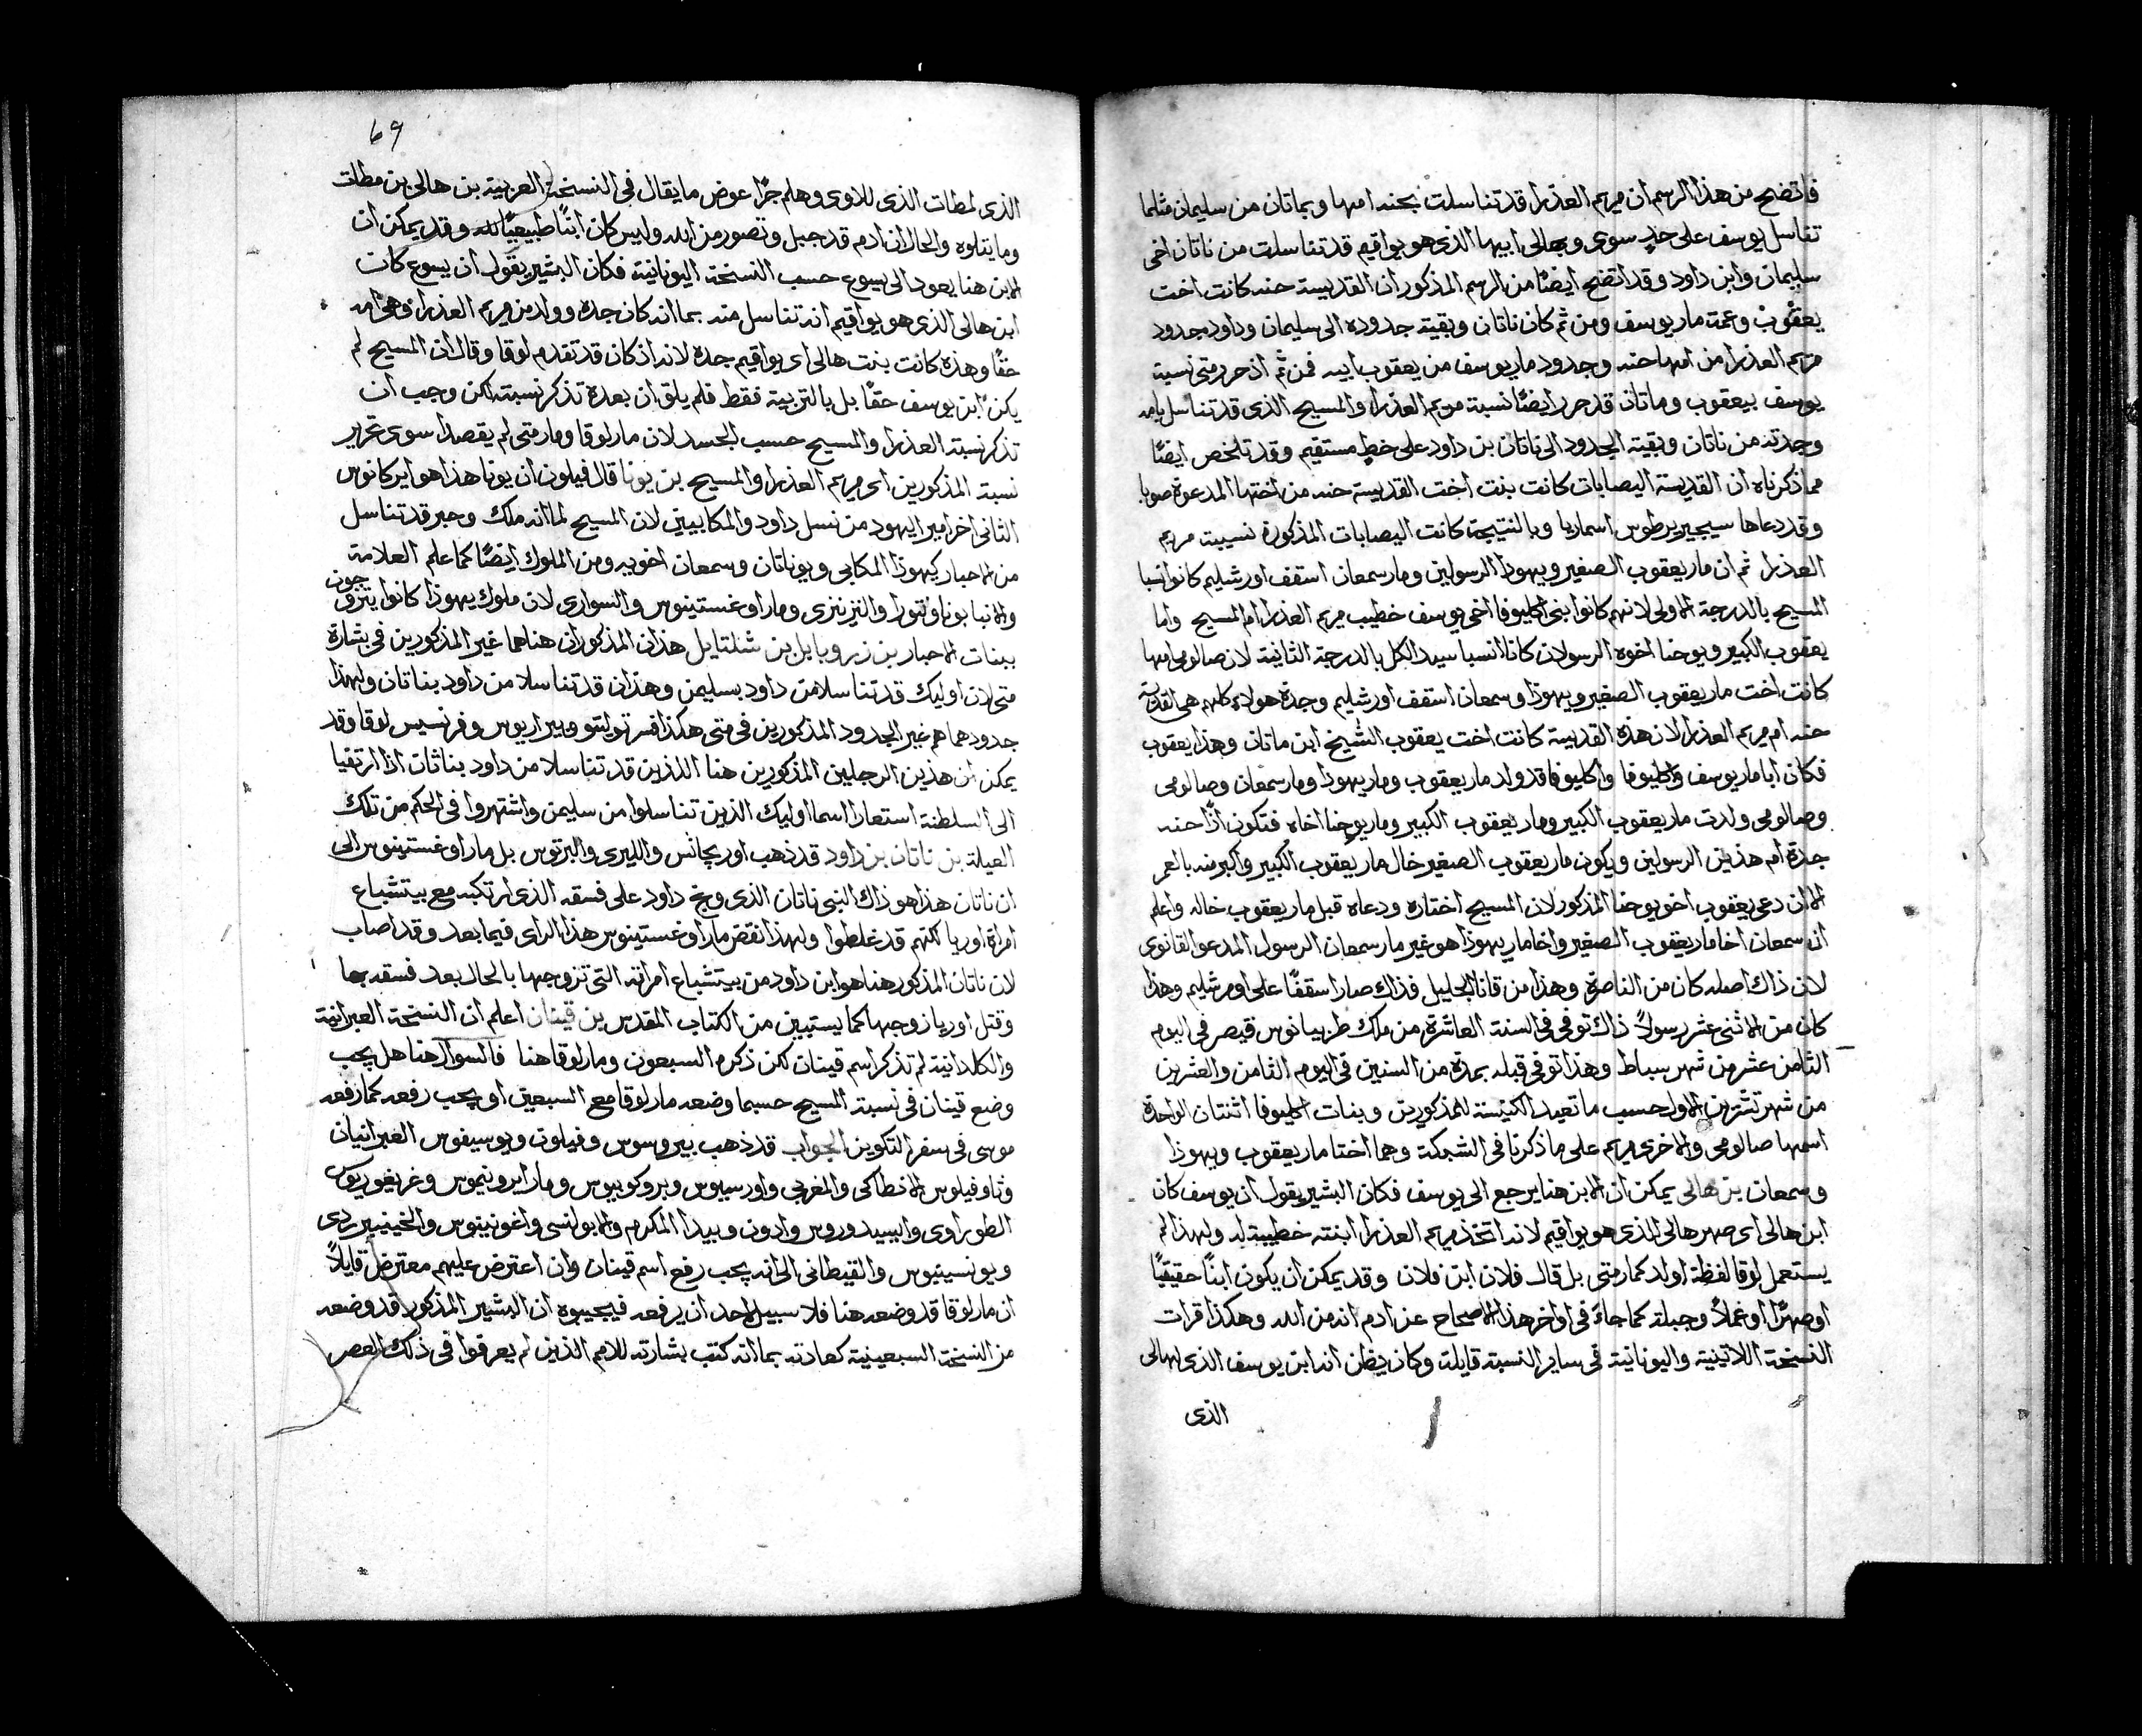 فاتضح من هذا الرسم ان مريم العذرا قد تناسلت بحنه امها وبماتان من سليمان مثلما
تناسل يوسف على حدٍ سوى وبهالى ابيها الذى هو يواقيم قد تناسلت من ناتان اخى
سليمان وابن داود وقد اتضح ايضًا من الرسم المذكور ان القديسة حنه كانت اخت
يعقوب وعمت مار يوسف ومن ثم كان ناتان وبقية جدوده الى سليمان وداود جدود
مريم العذرا من امها حنه وجدود مار يوسف من يعقوب ابيه فمن ثم اذ حرر متى نسبة
يوسف بيعقوب وماتان قد حرر ايضًا نسبة مريم العذرا والمسيح الذى قد تناسل بامه
وجدته من ناتان وبقية الجدود الى ناتان بن داود على خطٍ مستقيم وقد تلخص ايضًا
مما ذكرناه ان القديسة اليصابات كانت بنت اخت القديسة حنه من اختها المدعوة صوبا
وقد دعاها سيجيربرطوس اسماريا وبالنتيجة كانت اليصابات المذكورة نسيبة مريم
العذرا ثم ان مار يعقوب الصغير ويهوذا الرسولين ومار سمعان اسقف اورشليم كانوا انسبا
المسيح بالدرجة الاولى لانهم كانوا بنى اكليوفا اخى يوسف خطيب مريم العذرا ام المسيح واما
يعقوب الكبير ويوحنا اخوه الرسولان كانا انسبا سيد الكل بالدرجة الثانية لان صالومى امها
كانت اخت مار يعقوب الصغير ويهوذا وسمعان اسقف اورشليم وجدة هولاء كلهم هى القديسة
حنه ام مريم العذرا لان هذه القديسة كانت اخت يعقوب الشيخ ابن ماتان وهذا يعقوب
فكان ابا مار يوسف واكليوفا واكليوفا قد ولد مار يعقوب ومار يهوذا ومار سمعان وصالومى
وصالومى ولدت مار يعقوب الكبير ومار يعقوب الكبير ومار يوحنا اخاه فتكون اذًا حنه
جدة ام هذين الرسولين ويكون مار يعقوب الصغير خال مار يعقوب الكبير واكبر منه بالعمر
الا ان دعى يعقوب اخو يوحنا المذكور لان المسيح اختاره ودعاه قبل مار يعقوب خاله واعلم
ان سمعان اخا مار يعقوب الصغير واخا مار يهوذا هو غير مار سمعان الرسول المدعو القانوى
لان ذاك اصله كان من الناصرة وهذا من قانا الجليل فذاك صار اسقفًا على اورشليم وهذا
كان من الاثنى عشر رسولًا ذاك توفى فى السنة العاشرة من ملك طريانوس قيصر فى اليوم
الثامن عشر من شهر سباط وهذا توفى قبله بمدة من السنين فى اليوم الثامن والعشرين
من شهر تشرين الاول حسب ما تعيد الكنيسة للمذكورين وبنات اكليوفا اثنتان الواحدة
اسمها صالومى والاخرى مريم على ما ذكرنا فى الشبكة وهما اختا مار يعقوب ويهوذا
وسمعان بن هالى يمكن ان الابن هنا يرجع الى يوسف فكان البشير يقول ان يوسف كان
ابن هالى اى صهر هالى الذى هو يواقيم لانه اتخذ مريم العذرا ابنته خطيبة له ولهذا لم
يستعمل لوقا لفظة اولد كمار متى بل قال فلان ابن فلان وقد يمكن ان يكون ابنًا حقيقيًا
او صهرًا او عملًا وجبلة كما جاءَ فى اواخر هذا الاصحاح عن ادم انه من الله وهكذا قرات
النسخة اللاتينية واليونانية فى ساير النسبة قايلة وكان يظن انه ابن يوسف الذى لهالى
الذى
69
الذى لمطات الذى للاوى وهلم جرًا عوض ما يقال فى النسخة العربية بن هالى بن مطات
وما يتلوه والحال ان ادم قد جبل وتصور من الله وليس كان ابنًا طبيعيًا لله وقد يمكن ان
الابن هنا يعود الى يسوع حسب النسخة اليونانية فكان البشير يقول ان يسوع كان
ابن هالى الذى هو يواقيم انه تناسل منه بما انه كان جده وولد من مريم العذرا وهى امه
حقًا وهذه كانت بنت هالى اى يواقيم جده لانه اذ كان قد تقدم لوقا وقال ان المسيح لم
يكن ابن يوسف حقًا بل بالتربية فقط فلم يلق ان بعده تذكر نسبته لكن وجب ان
تذكر نسبة العذرا والمسيح حسب الجسد لان مار لوقا ومار متى لم يقصدا سوى تحرير
نسبة المذكورين اى مريم العذرا والمسيح بن يونا قال فيلون ان يونا هذا هو ايركانوس
الثانى اخر امير اليهود من نسل داود والمكابيين لان المسيح لما انه ملك وحبر قد تناسل
من الاحبار كيهوذا المكابى ويوناتان وسمعان اخويه ومن الملوك ايضًا كما علم العلامة
والانبا بوناونتورا والنزينزى ومار اوغستينوس والنسوارى لان ملوك يهوذا كانوا يتزوجون
ببنات الاحبار بن زروبابل بن شلتايل هذان المذكوران هنا هما غير المذكورين فى بشارة
متى لان اوليك قد تناسلا من داود بسليمن وهذان قد تناسلا من داود بناتان ولهذا
جدودهما هم غير الجدود المذكورين فى متى هكذا فسر توليتو وبيراريوس وفرنسيس لوقا وقد
يمكن ان هذين الرجلين المذكورين هنا اللذين قد تناسلا من داود بناتان اذا ارتقيا
الى السلطنة استعارا اسما اوليك الذين تناسلوا من سليمن واشتهروا فى الحكم من تلك
العيلة بن ناتان بن داود قد ذهب اوريجانس والليرى والبرتوس بل مار اوغستينوس الى
ان ناتان هذا هو ذاك النبى ناتان الذى وبخ داود على فسقه الذى ارتكبه مع بيتشباع
امراة اوريا لكنهم قد غلطوا ولهذا نقض مار اوغستينوس هذا الراى فيما بعد وقد اصاب
لان ناتان المذكور هنا هو ابن داود من بيتشباع امراته التى تزوجها بالحال بعد فسقه بها
وقتل اوريا زوجها كما يستبين من الكتاب المقدس بن قينان اعلم ان النسخة العبرانية
والكلدانية لم تذكر اسم قينان لكن ذكره السبعون ومار لوقا هنا فالسوال هنا هل يجب
وضع قينان فى نسبة المسيح حسبما وضعه مار لوقا مع السبعين او يجب رفعه كما رفعه
موسى فى سفر التكوين الجواب قد ذهب بيروسوس وفيلون ويوسيفوس العبرانيان
وثاوفيلوس الانطاكى والمغربى واورسيلوس وبروكوبيوس ومار ايرونيموس وغريغوريوس
الطوراوى وايسيدوروس وادون وبيدا المكرم والابولنسى واغونيتوس والخينيبردى
ويونسينيوس والقيطانى الى انه يجب رفع اسم قينان وان اعترض عليهم معترض قايلًا
ان مار لوقا قد وضعه هنا فلا سبيل لاحد ان يرفعه فيجيبوه ان البشير المذكور قد وضعه
من النسخة السبعينية كعادته بما انه كتب بشارته للامم الذين لم يعرفوا فى ذلك العصر